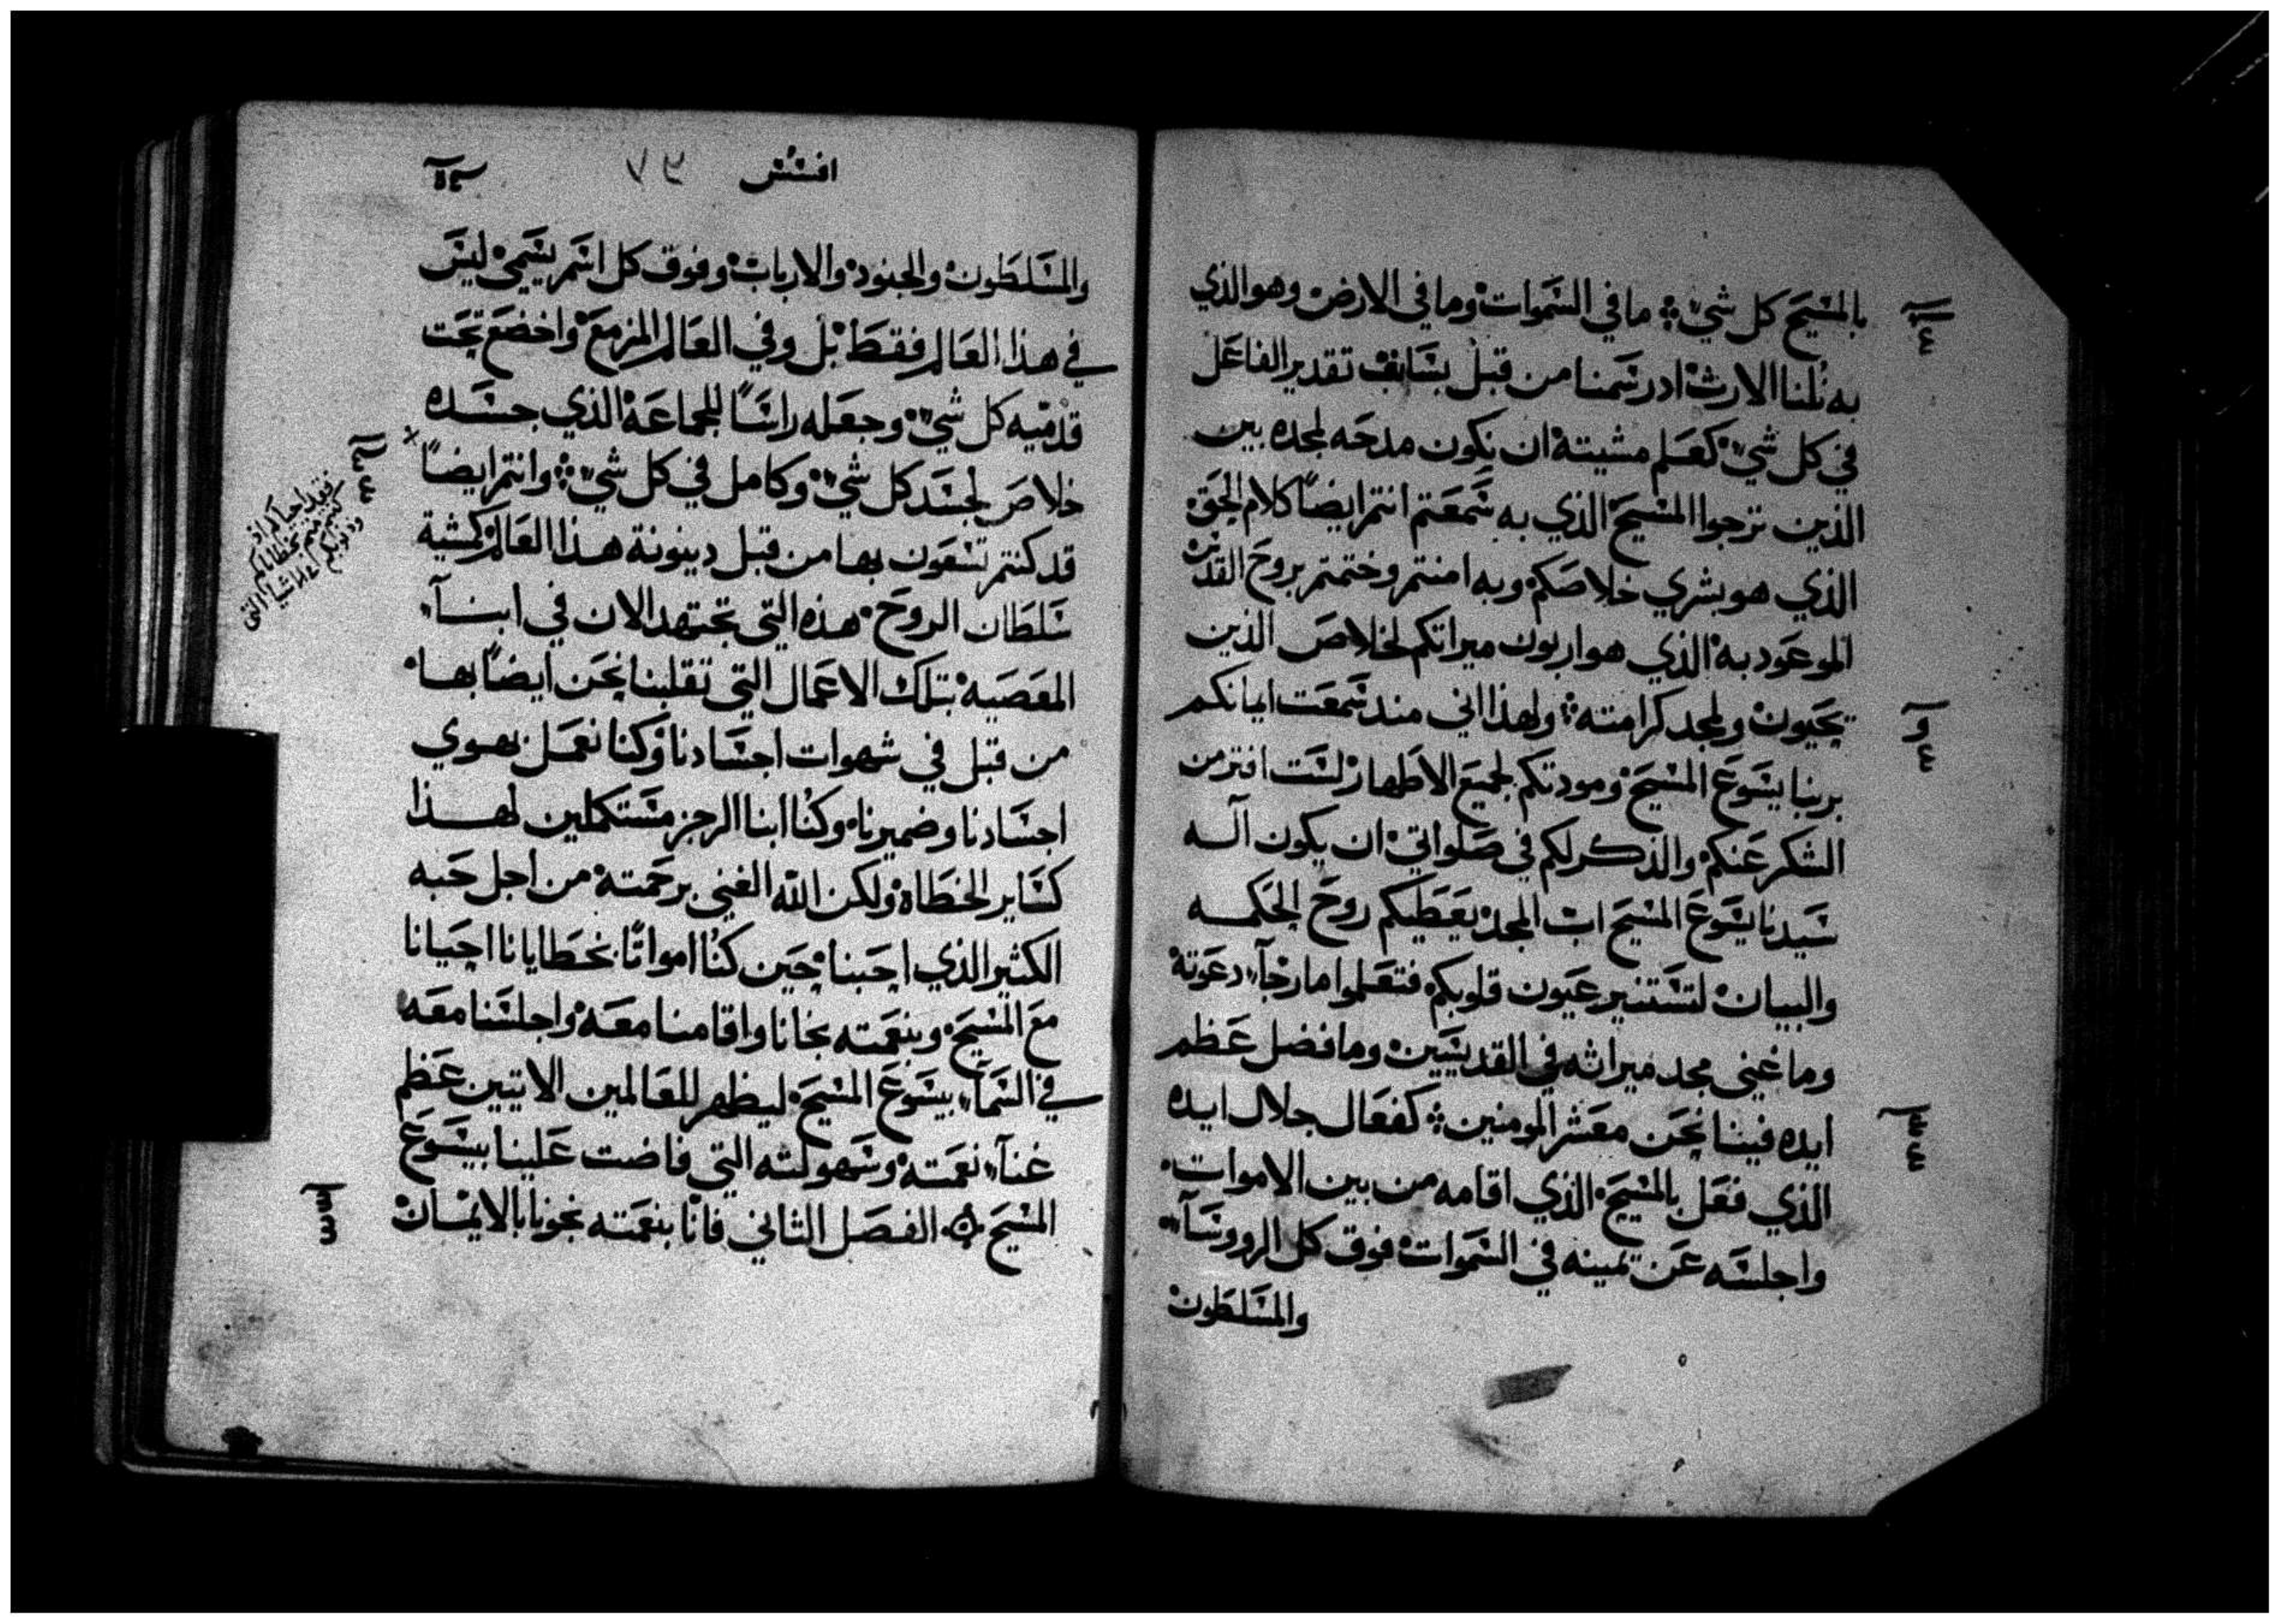 بالمسيح كل شي ما في السموات وما في الارض وهو الذي
به نلنا الارث اذ رسمنا من قبل بسابق تقدير الفاعل
في كل شي كعلم مشيته ان نكون مدحه لمجده بين
الذين ترجوا المسيح الذي به سمعتم انتم ايضًا كلام الحق
الذي هو بشري خلاصكم وبه امنتم وختمتم بروح القدس
الموعود به الذي هو اربون ميراتكم لخلاص الذين
يحيون ولمجد كرامته ولهذا اني منذ سمعت ايمانكم
بربنا يسوع المسيح ومودتكم لجميع الاطهار لست افتر من
الشكر عنكم والذكر لكم في صلواتي ان يكون اله
سيدنا يسوع المسيح اب المجد يعطيكم روح الحكمه
والبيان لتستنير عيون قلوبكم فتعلموا ما رجآء دعوته
وما غني مجد ميراثه في القديسين وما فضل عظم
ايده فينا نحن معشر المومنين كفعال جلال ايده
الذي فعل بالمسيح الذي اقامه من بين الاموات
واجلسه عن يمينه في السموات فوق كل الروسآء
والمسلطون
افسس ٩٧
والمسلطون والجنود والارباب وفوق كل اسم يسمي ليس
في هذا العالم فقط بل وفي العالم المزمع واخضع تحت
قدميه كل شي وجعله راسًا للجماعة الذي جسده
خلاص لجسد كل شي وكامل في كل شي وانتم ايضًا
قد كنتم تسعون بها من قبل دينونة هذا العالم كمشية
سلطان الروح هذه التي تجتهد الان في ابنآء
المعصيه بتلك الاعمال التي تقلبنا نحن ايضًا بها
من قبل في شهوات اجسادنا وكنا نعمل بهوي
اجسادنا وضميرنا وكنا ابنا الرجز مستكملين لهذا
كساير الخطاه ولكن الله الغني برحمته من اجل حبه
الكثير الذي احبنا حين كنا امواتًا بخطايانا احيانا
مع المسيح وبنعمته نجانا واقامنا معه واجلسنا معه
في السمآء بيسوع المسيح ليظهر للعالمين الاتيين عظم
غنآء نعمته وسهولته التي فاضت علينا بيسوع
المسيح الفصل الثاني فانا بنعمته نجونا بالايمان